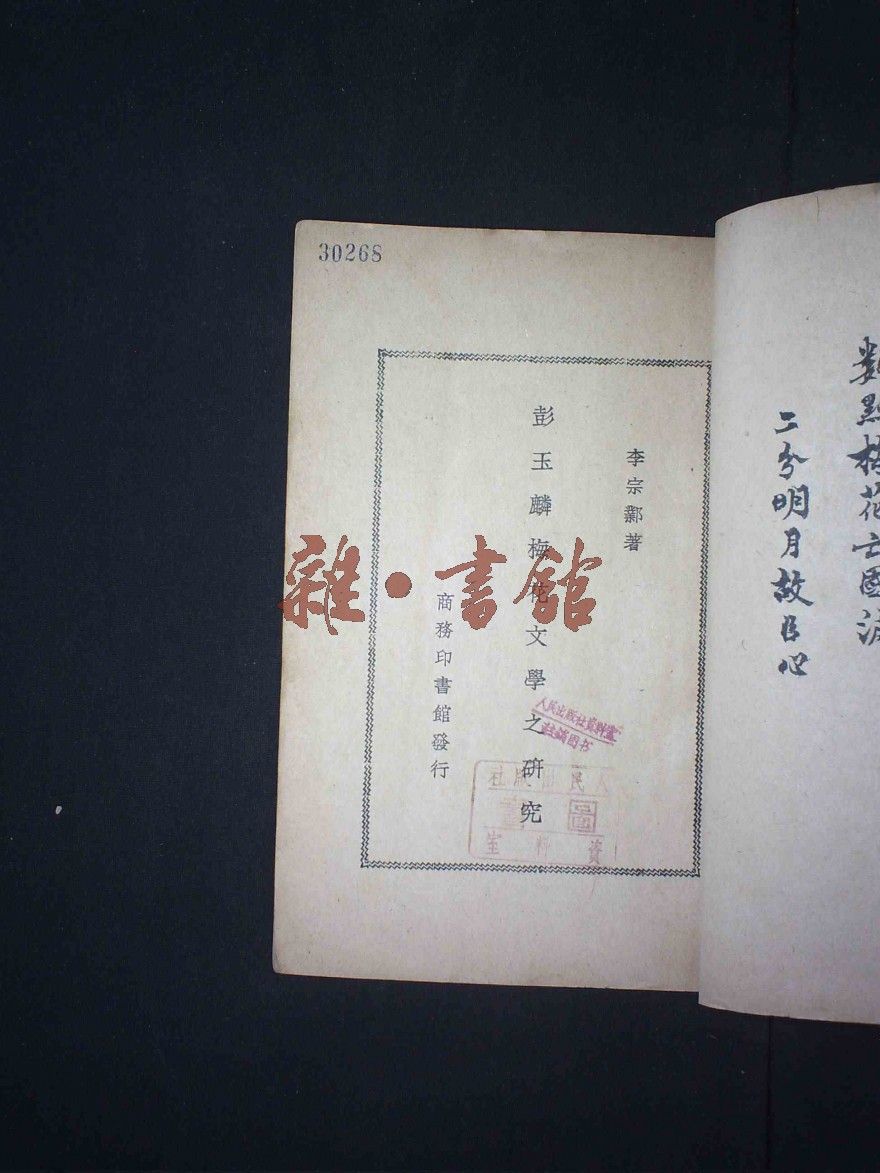 30268
李宗鄴著
彭玉麟梅花文學之研究
商務印書館發行
雜·書館
人民出版社資料室
註銷图书
人民出版社
圖書
資料室
數點梅花亡國淚
二分明月故臣心